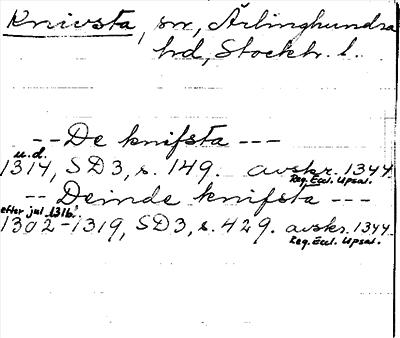 Knivsta, sn, Ärlinghundra
hd, Stockh. l.
-- De knifsta ---
u.d.
1314, SD3, s. 149. avskr. 1344.
Reg. Eccl. Upsal.
-- Deinde knifsta ---
efter jul 1316.
1302-1319, SD3, s. 429. avskr. 1344.
Reg. Eccl. Upsal.